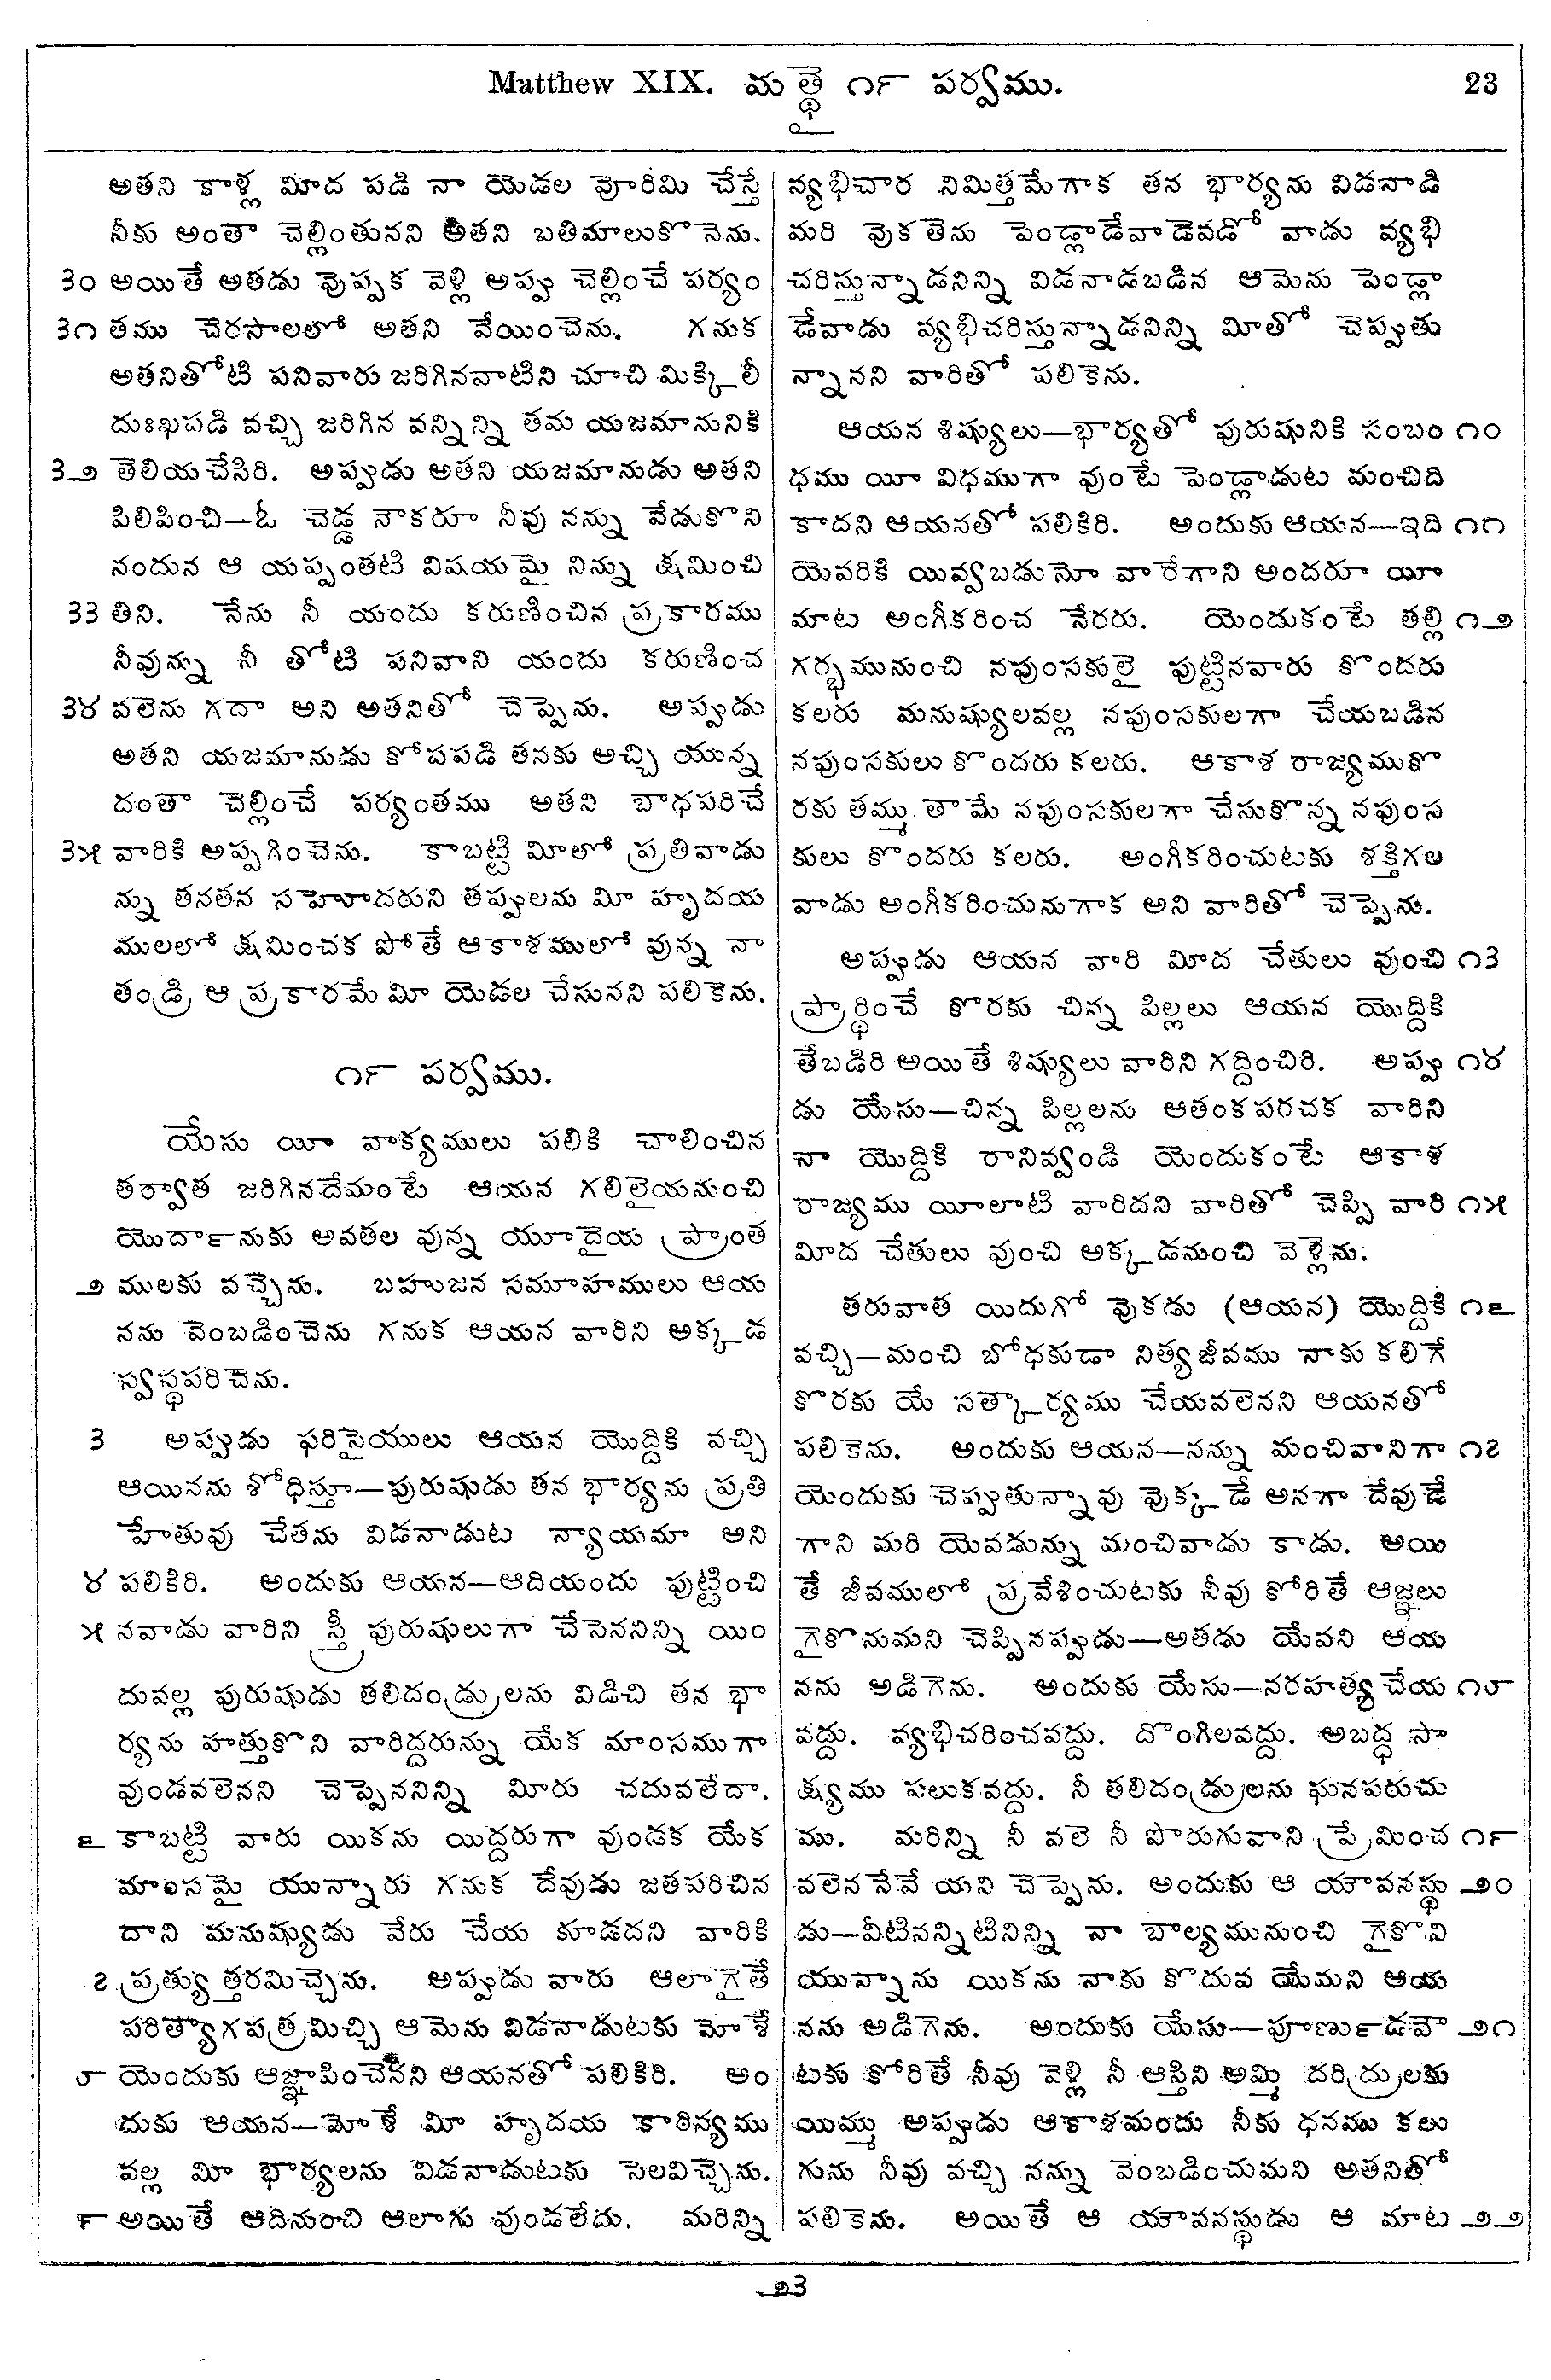 Matthew XIX. మత్థై ౧౯ పర్వము. 23
అతని కాళ్ల మీద పడి నా యెడల వోరిమి చేస్తే
నీకు అంతా చెల్లింతునని అతని బతిమాలుకొనెను.
3౦ అయితే అతడు వొప్పక వెళ్లి అప్పు చెల్లించే పర్యం
౩౧ తము చెరసాలలో అతని వేయించెను. గనుక
అతనితోటి పనివారు జరిగినవాటిని చూచి మిక్కిలీ
దుఃఖపడి వచ్చి జరిగిన వన్నిన్ని తమ యజమానునికి
౩౨ తెలియచేసిరి. అప్పుడు అతని యజమానుడు అతని
పిలిపించి—ఓ చెడ్డ నౌకరూ నీవు నన్ను వేడుకొని
నందున ఆ యప్పంతటి విషయమై నిన్ను క్షమించి
౩౩ తిని. నేను నీ యందు కరుణించిన ప్రకారము
నీవున్ను నీ తోటి పనివాని యందు కరుణించ
౩౪ వలెను గదా అని అతనితో చెప్పెను. అప్పుడు
అతని యజమానుడు కోపపడి తనకు అచ్చి యున్న
దంతా చెల్లించే పర్యంతము అతని బాధపరిచే
౩౫ వారికి అప్పగించెను. కాబట్టి మీలో ప్రతివాడు
న్ను తనతన సహోదరుని తప్పులను మీ హృదయ
ములలో క్షమించక పోతే ఆకాశములో వున్న నా
తండ్రి ఆ ప్రకారమే మీ యెడల చేసునని పలికెను.
౧౯ పర్వము.
యేసు యీ వాక్యములు పలికి చాలించిన
తర్వాత జరిగినదేమంటే ఆయన గలిలైయనుంచి
యొర్దానుకు అవతల వున్న యూదైయ ప్రాంత
౨ ములకు వచ్చెను. బహుజన సమూహములు ఆయ
నను వెంబడించెను గనుక ఆయన వారిని అక్కడ
స్వస్థపరిచెను.
౩ అప్పుడు ఫరిసైయులు ఆయన యొద్దికి వచ్చి
ఆయినను శోధిస్తూ—పురుషుడు తన భార్యను ప్రతి
హేతువు చేతను విడనాడుట న్యాయమా అని
౪ పలికిరి. అందుకు ఆయన—ఆదియందు పుట్టించి
౫ నవాడు వారిని స్త్రీ పురుషులుగా చేసెననిన్ని యిం
దువల్ల పురుషుడు తలిదండ్రులను విడిచి తన భా
ర్యను హత్తుకొని వారిద్దరున్ను యేక మాంసముగా
వుండవలెనని చెప్పెననిన్ని మీరు చదువలేదా.
౬ కాబట్టి వారు యికను యిద్దరుగా వుండక యేక
మాంసమై యున్నారు గనుక దేవుడు జతపరిచిన
దాని మనుష్యుడు వేరు చేయ కూడదని వారికి
౭ ప్రత్యుత్తరమిచ్చెను. అప్పుడు వారు ఆలాగైతే
పరిత్యాగపత్రమిచ్చి ఆమెను విడనాడుటకు మోశే
౮ యెందుకు ఆజ్ఞాపించెనని ఆయనతో పలికిరి. అం
దుకు ఆయన—మోశే మీ హృదయ కాఠిన్యము
వల్ల మీ భార్యలను విడనాడుటకు సెలవిచ్చెను.
౯ అయితే ఆదినుంచి ఆలాగు వుండలేదు. మరిన్ని
న్యభిచార నిమిత్తమేగాక తన భార్యను విడనాడి
మరి వొకతెను పెండ్లాడేవాడెవడో వాడు వ్యభి
చరిస్తున్నాడనిన్ని విడనాడబడిన ఆమెను పెండ్లా
డేవాడు వ్యభిచరిస్తున్నాడనిన్ని మీతో చెప్పుతు
న్నానని వారితో పలికెను.
ఆయన శిష్యులు—భార్యతో పురుషునికి సంబం ౧౦
ధము యీ విధముగా వుంటే పెండ్లాడుట మంచిది
కాదని ఆయనతో పలికిరి. అందుకు ఆయన—ఇది ౧౧
యెవరికి యివ్వబడునో వారేగాని అందరూ యీ
మాట అంగీకరించ నేరరు. యెందుకంటే తల్లి ౧౨
గర్భమునుంచి నపుంసకులై పుట్టినవారు కొందరు
కలరు మనుష్యులవల్ల నపుంసకులగా చేయబడిన
నపుంసకులు కొందరు కలరు. ఆకాశ రాజ్యముకొ
రకు తమ్ము తామే నపుంసకులగా చేసుకొన్న నపుంస
కులు కొందరు కలరు. అంగీకరించుటకు శక్తిగల
వాడు అంగీకరించునుగాక అని వారితో చెప్పెను.
అప్పుడు ఆయన వారి మీద చేతులు వుంచి ౧౩
ప్రార్థించే కొరకు చిన్న పిల్లలు ఆయన యొద్దికి
తేబడిరి అయితే శిష్యులు వారిని గద్దించిరి. అప్పు ౧౪
డు యేసు—చిన్న పిల్లలను ఆతంకపరచక వారిని
నా యొద్దికి రానివ్వండి యెందుకంటే ఆకాశ
రాజ్యము యీలాటి వారిదని వారితో చెప్పి వారి ౧౫
మీద చేతులు వుంచి అక్కడనుంచి వెళ్లెను.
తరువాత యిదుగో వొకడు (ఆయన) యొద్దికి ౧౬
వచ్చి—మంచి బోధకుడా నిత్యజీవము నాకు కలిగే
కొరకు యే సత్కార్యము చేయవలెనని ఆయనతో
పలికెను. అందుకు ఆయన—నన్ను మంచివానిగా ౧౭
యెందుకు చెప్పుతున్నావు వొక్కడే అనగా దేవుడే
గాని మరి యెవడున్ను మంచివాడు కాడు. అయి
తే జీవములో ప్రవేశించుటకు నీవు కోరితే ఆజ్ఞలు
గైకొనుమని చెప్పినప్పుడు—అతడు యేవని ఆయ
నను అడిగెను. అందుకు యేసు—నరహత్య చేయ ౧౮
వద్దు. వ్యభిచరించవద్దు. దొంగిలవద్దు. అబద్ధ సా
క్ష్యము పలుకవద్దు. నీ తలిదండ్రులను ఘనపరుచు
ము. మరిన్ని నీ వలె నీ పొరుగువాని ప్రేమించ ౧౯
వలెననేవే యని చెప్పెను. అందుకు ఆ యౌవనస్థు ౨౦
డు—వీటినన్నిటినిన్ని నా బాల్యమునుంచి గైకొని
యున్నాను యికను నాకు కొదువ యేమని ఆయ
నను అడిగెను. అందుకు యేసు—పూర్ణుడవౌ ౨౧
టకు కోరితే నీవు వెళ్లి నీ ఆస్తిని అమ్మి దరిద్రులకు
యిమ్ము అప్పుడు ఆకాశమందు నీకు ధనము కలు
గును నీవు వచ్చి నన్ను వెంబడించుమని అతనితో
పలికెను. అయితే ఆ యౌవనస్థుడు ఆ మాట ౨౨
౨౩